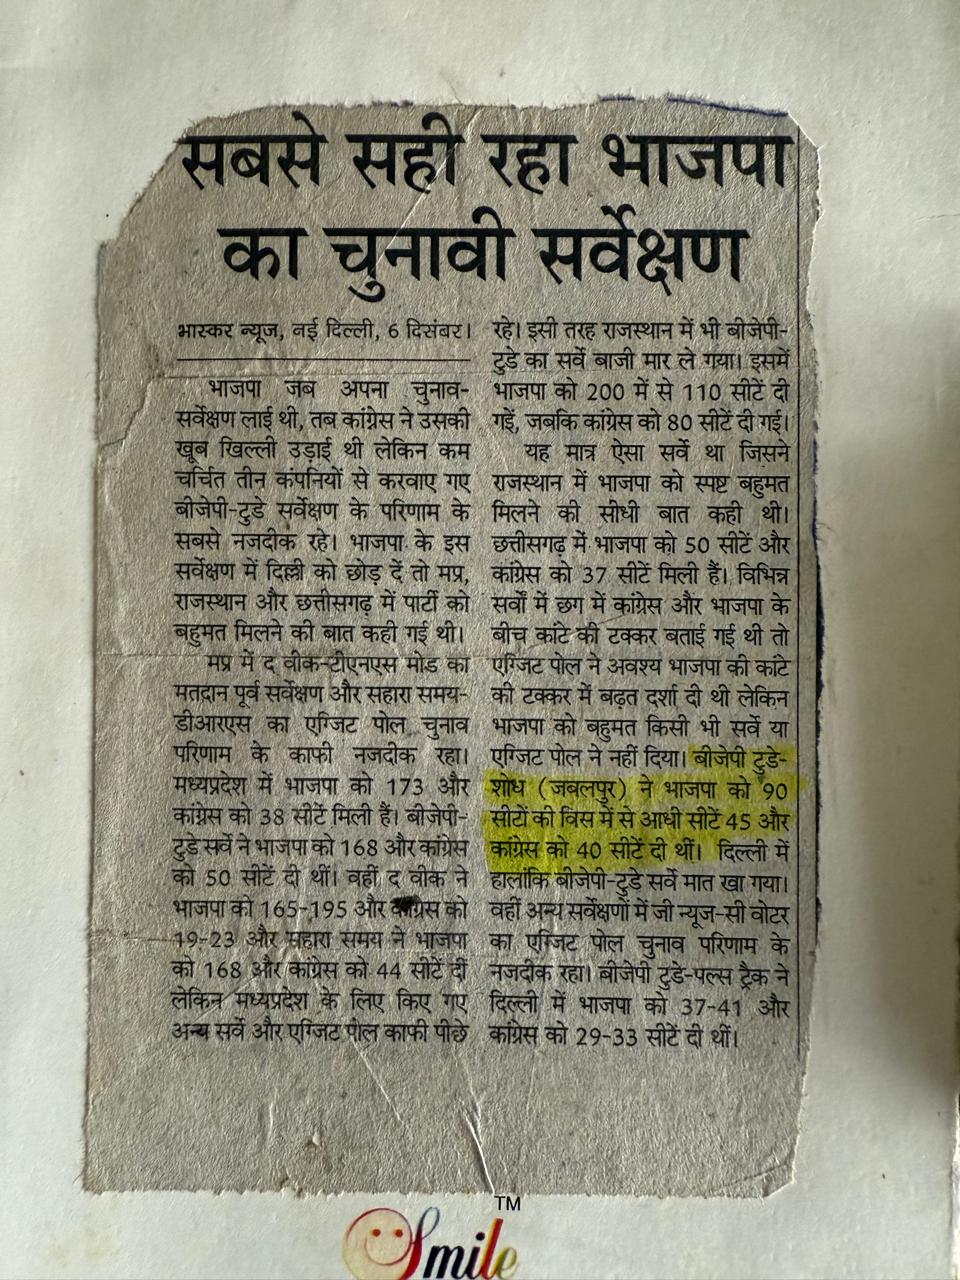 सबसे सही रहा भाजपा
का चुनावी सर्वेक्षण
भास्कर न्यूज, नई दिल्ली, 6 दिसंबर।
भाजपा जब अपना चुनाव-
सर्वेक्षण लाई थी, तब कांग्रेस ने उसकी
खूब खिल्ली उड़ाई थी लेकिन कम
चर्चित तीन कंपनियों से करवाए गए
बीजेपी-टुडे सर्वेक्षण के परिणाम के
सबसे नजदीक रहे। भाजपा के इस
सर्वेक्षण में दिल्ली को छोड़ दें तो मप्र,
राजस्थान और छत्तीसगढ़ में पार्टी को
बहुमत मिलने की बात कही गई थी।
मप्र में द वीक-टीएनएस मोड का
मतदान पूर्व सर्वेक्षण और सहारा समय-
डीआरएस का एग्जिट पोल चुनाव
परिणाम के काफी नजदीक रहा।
मध्यप्रदेश में भाजपा को 173 और
कांग्रेस को 38 सीटें मिली हैं। बीजेपी-
टुडे सर्वे ने भाजपा को 168 और कांग्रेस
को 50 सीटें दी थीं। वहीं द वीक ने
भाजपा को 165-195 और कांग्रेस को
19-23 और सहारा समय ने भाजपा
को 168 और कांग्रेस को 44 सीटें दीं
लेकिन मध्यप्रदेश के लिए किए गए
अन्य सर्वे और एग्जिट पोल काफी पीछे
रहे। इसी तरह राजस्थान में भी बीजेपी-
टुडे का सर्वे बाजी मार ले गया। इसमें
भाजपा को 200 में से 110 सीटें दी
गईं, जबकि कांग्रेस को 80 सीटें दी गई।
यह मात्र ऐसा सर्वे था जिसने
राजस्थान में भाजपा को स्पष्ट बहुमत
मिलने की सीधी बात कही थी।
छत्तीसगढ़ में भाजपा को 50 सीटें और
कांग्रेस को 37 सीटें मिली हैं। विभिन्न
सर्वों में छग में कांग्रेस और भाजपा के
बीच कांटे की टक्कर बताई गई थी तो
एग्जिट पोल ने अवश्य भाजपा की कांटे
की टक्कर में बढ़त दर्शा दी थी लेकिन
भाजपा को बहुमत किसी भी सर्वे या
एग्जिट पोल ने नहीं दिया। बीजेपी टुडे-
शोध (जबलपुर) ने भाजपा को 90
सीटों की विस में से आधी सीटें 45 और
कांग्रेस को 40 सीटें दी थीं। दिल्ली में
हालांकि बीजेपी-टुडे सर्वे मात खा गया।
वहीं अन्य सर्वेक्षणों में जी न्यूज-सी वोटर
का एग्जिट पोल चुनाव परिणाम के
नजदीक रहा। बीजेपी टुडे-पल्स ट्रैक ने
दिल्ली में भाजपा को 37-41 और
कांग्रेस को 29-33 सीटें दी थीं।
Smile TM